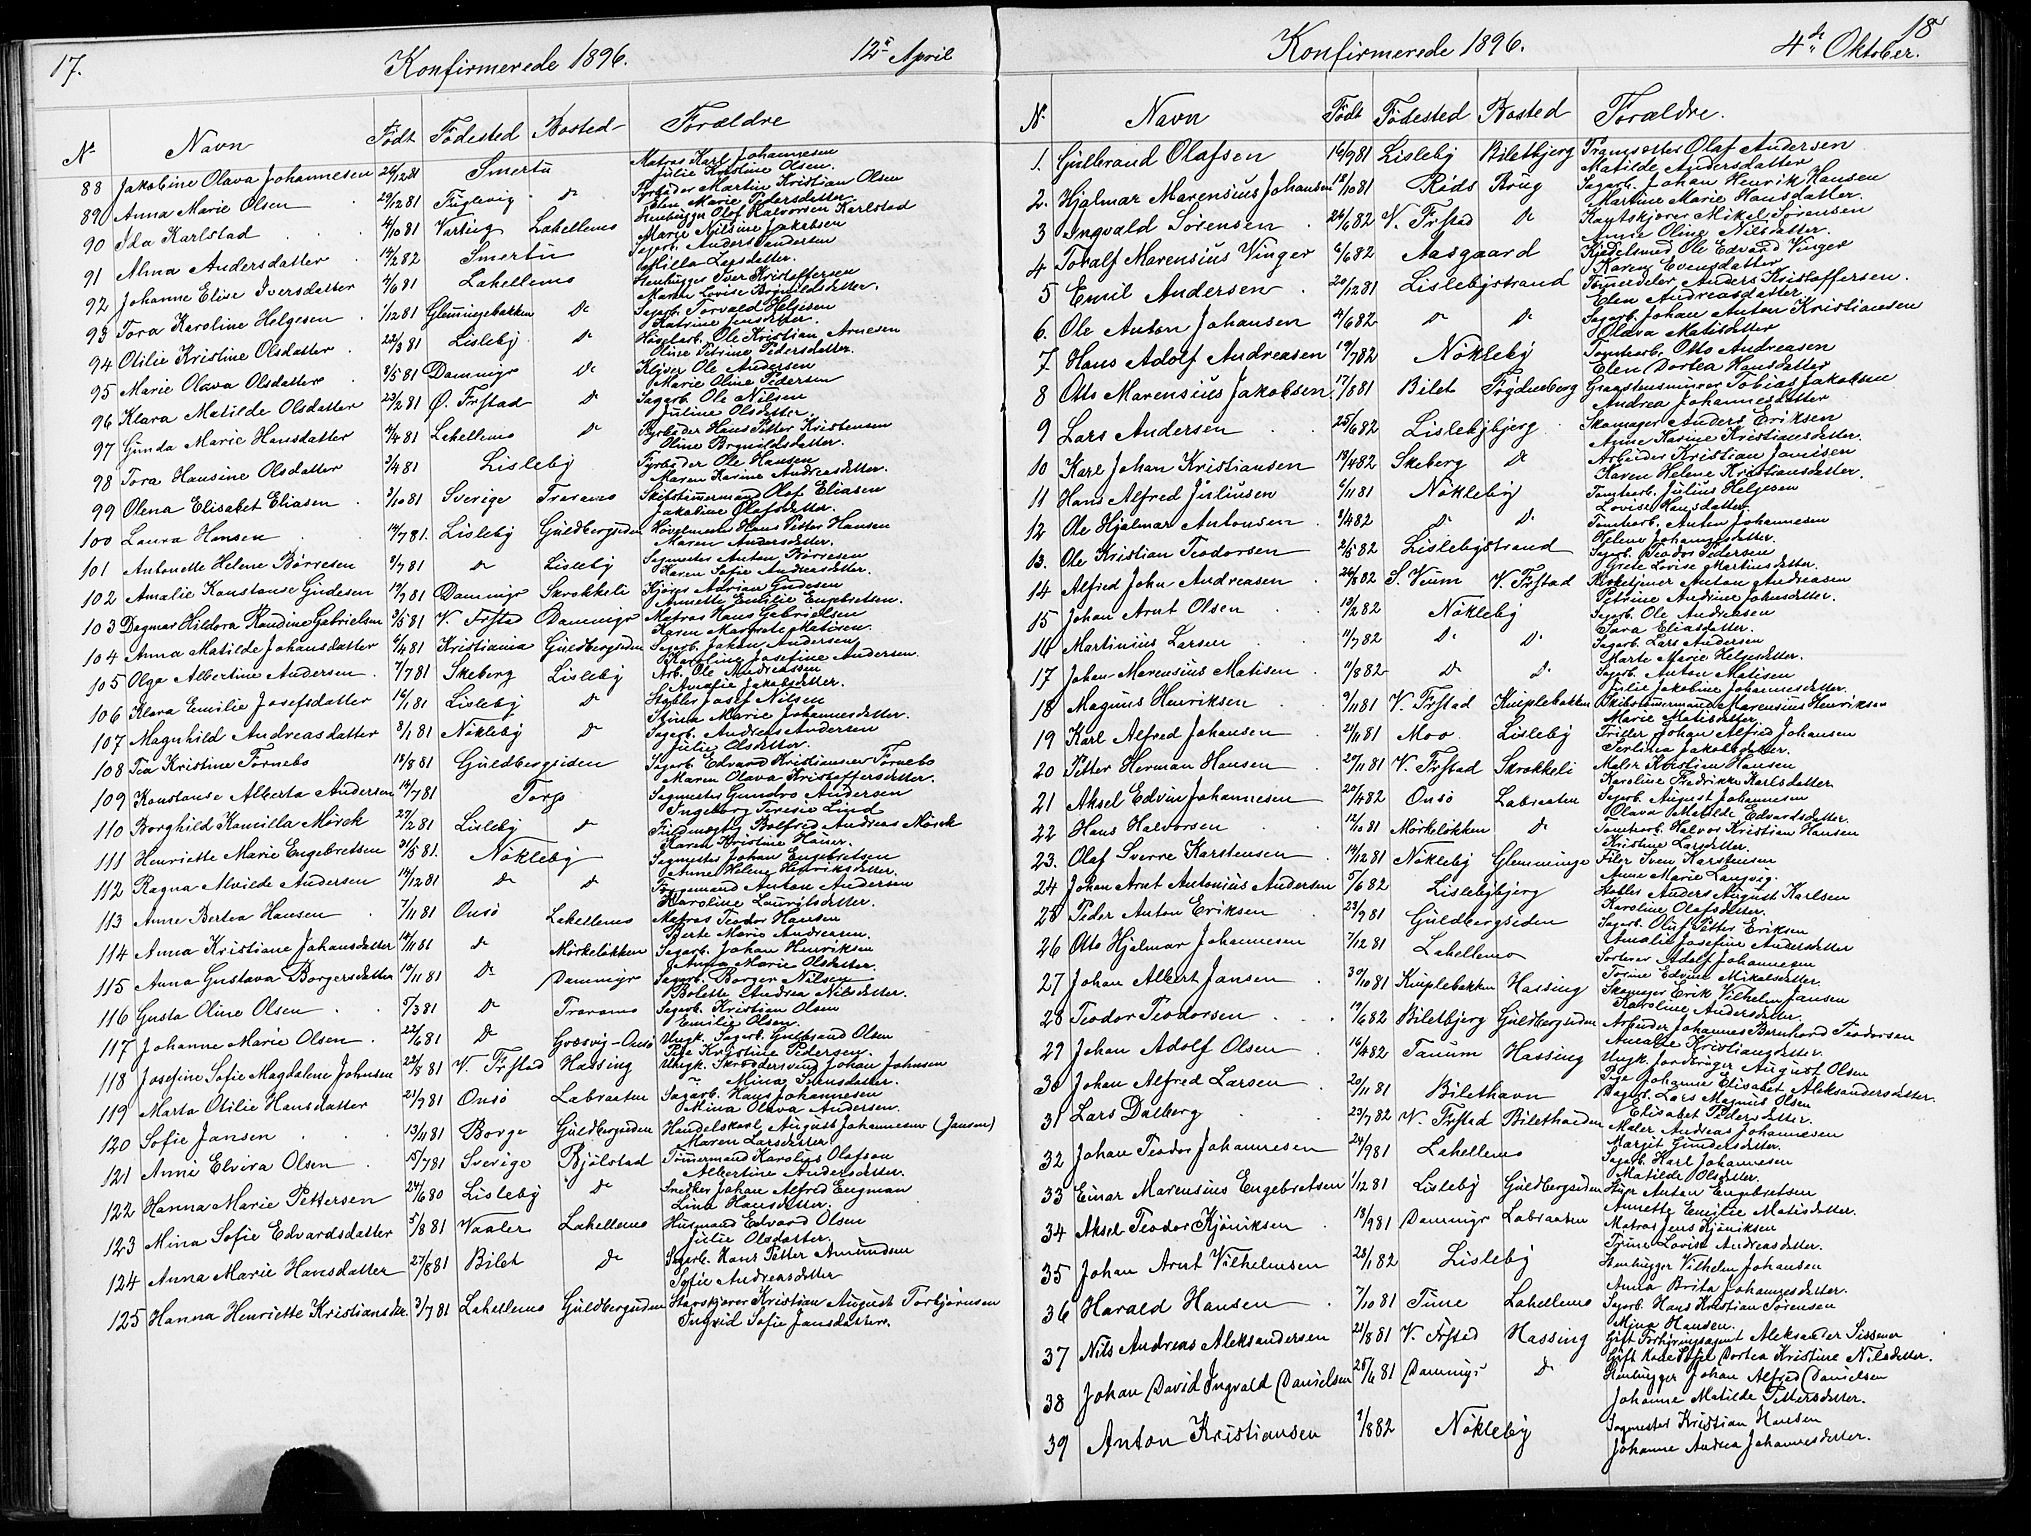 17.
Konfirmerede 1896.
12te April
No Navn Födt Födested Bosted Forældre
88 Jakobine Olava Johannesen 26/2 81 Smertu Matros Karl Johannesen
Julie Kristine Olsen.
89 Anna Marie Olsen 29/2 81 Fuglevig do Fyrböder Martin Kristian Olsen
Elen Marie Pedersdatter
90 Ida Karlstad 4/10 81 Varteig Lahellemo Stenhugger Olof Halvorsen Karlstad
Marie Nilsine Jakobsen
91 Alma Andersdatter 14/2 82 Smertu Sagarb. Anders
Milla Larsdatter.
92 Johanne Elise Iversdatter 4/6 81 Lahellemo Stenhugger Iver Kristoffersen
Maren Lovise
93 Tora Karoline Helgesen 1/12 81 Glemmingebakken do Sagarb. Torvald Helgesen
Katrine Jensdatter.
94 Otilie Kristine Olsdatter 22/3 81 Lisleby do Ole Kristian Arnesen
Oline Petrine Pedersdatter.
95 Marie Olava Olsdatter 8/5 81 Dammyr do Klyver Ole Andersen
Marie Oline Pedersen
96 Klara Matilde Olsdatter 23/2 81 Ö. Frstad do Sagarb. Ole Nilsen
Juline Olsdatter.
97 Gunda Marie Hansdatter 4/4 81 Lahellemo do Fyrböder Hans Petter Kristensen
Oline
98 Tora Hansine Olsdatter 3/4 81 Lisleby Fyrböder Ole Hansen
Maren Karine Andreasdatter.
99 Olena Elisabet Eliasen 3/10 81 Sverige Traramo Skibstömmermand Olof Eliasen
Jakobine Olafsdatter.
100 Laura Hansen 14/7 81. Lisleby Guldbergsiden Hans Petter Hansen
Maren Andersdatter.
101 Antonette Helene Börresen 8/7 81 do Lisleby Sagmester Anton Börresen
Karen Sofie Andreasdatter.
102 Amalie Konstanse Gudesen 19/9 81 Dammyr Skrokkeli Kjörer Adrian Gudesen
Annette Emilie Engebretsen.
103 Dagmar Hildora Randine Gabrielsen 3/5 81 V. Frstad Dammyr Matros Hans Gabrielsen
Karen Margrete Matisen.
104 Anna Matilde Johansdatter 6/4 81 Kristiania Guldbergsiden Sagarb. Johan Andersen
Karoline Josefine Andersen.
105 Olga Albertine Andersen 7/7 81 Skeberg Lisleby Arb. Ole Andreassen
Jakobsdatter.
106 Klara Emilie Josefsdatter 16/1 81 Lisleby do Stabler Josef Nilsen
Stina Marie Johannesdatter.
107 Magnhild Andreasdatter 8/1 81 Nökleby do Sagarb. Andreas Andersen
Julie Olsdatter.
108 Tea Kristine Törnebo 13/8 81 Guldbergsiden Sagarb. Edvard Kristiansen Törnebo
Maren Olava Kristoffersdatter.
109 Konstanse Alberta Andersen 14/7 81 Torp Sagmester Gundro Andersen
Ingeborg Teresie Lind
110 Borghild Kamilla Mörck 27/2 81 Lisleby do Fuldmægtig Bolfred Andreas Mörck
Karen Kristine Hansen.
111 Henriette Marie Engebretsen 31/5 81. Nökleby Sagmester Johan Engebretsen
Anne Helene Henriksdatter.
112 Ragna Alvilde Andersen 14/12 81 do do Anton Andersen
Karoline Lauritsdatter.
113 Anne Bertea Hansen 7/11 81 Onsö Lahellemo Matros Teodor Hansen
Berte Marie Andreasen.
114 Anna Kristiane Johansdatter 12/11 81 do Mörkelökken Sagarb. Johan Henriksen
Anna Marie Olsdatter.
115 Anna Gustava Borgersdatter 19/11 81 do Dammyr Sagarb. Borger Nilsen
Bolette Andrea Nilsdatter.
116 Gusta Oline Olsen 5/3 81 do Traramo Sagarb. Kristian Olsen
Emilie Olsen.
117 Johanne Marie Olsen 22/6 81 do Græsvig-Onsö Ungk. Sagarb. Gulbrand Olsen
Pige Kristine Pedersen.
118 Josefine Sofie Magdalene Johnsen 22/8 81 V. Frstad Hassing Ungk. Skræddersvend Johan Johnsen
Mina Svensdatter.
119 Marta Otilie Hansdatter 21/9 81 Onsö Labraaten Sagarb. Hans Johannesen
Mina Olava Andersen.
120 Sofie Jansen 13/11 81 Borge Guldbergsiden Handelskarl. August Johannesen (Jansen)
Maren Larsdatter
121 Anne Elvira Olsen 15/7 81 Sverige Bjölstad Tömmermand Karolius Olafson
Albertine Andersdatter.
122 Hanna Marie Pettersen 24/6 80 Lisleby do Snedker Johan Alfred Engman
Lina Hansdatter.
123 Mina Sofie Edvardsdatter 5/8 81 Vaaler Lahellemo Husmand Edvard Olsen
Julie Olsdatter.
124 Anna Marie Hansdatter 27/8 81 Bilet do Sagarb. Hans Petter Amundsen
Sofie Andreasdatter
125 Hanna Henriette Kristiansdtr. 3/7 81 Lahellemo Guldbergsiden Kristian August Torbjörnsen
Ingrid Sofie Jansdatter.
18
Konfirmerede 1896.
4de Oktober.
No Navn Födt Födested Bosted Forældre.
1. Gulbrand Olafsen 16/9 81 Lisleby Biletbjerg Olaf Andersen
Matilde Andersdatter
2. Hjalmar Marensius Johansen 18/10 81 Rids Brug Sagarb. Johan Henrik Hansen
Martine Marie Hansdatter.
3 Ingvald Sörensen 26/6 82 V. Frstad do Mikal Sörensen
Anne Oline Nilsdatter.
4 Toralf Marensius Vinger 6/6 82 Aasgaard Kjedelsmed Ole Edvard Vinger
Karen Evensdatter
5 Emil Andersen 20/12 81 Lislebystrand Anders Kristoffersen.
Elen Andreasdatter
6. Ole Anton Johansen 4/6 82 do do Sagarb. Johan Anton Kristiansen
Olava Matisdatter
7 Hans Adolf Andreasen 19/7 82 Nökleby Tomtearb. Otto Andreasen
Elen Dortea Hansdatter
8 Otto Marensius Jakobsen 17/8 81 Bilet Frydenberg Graastensminer Tobias Jakobsen
Andrea Johannesdatter
9 Lars Andersen 25/6 82 Lislebybjerg Skomager Anders Eriksen
Anne Karine Kristiansdatter.
10 Karl Johan Kristiansen 13/4 82 Skeberg do Arbeider Kristian Jonisen
Karen Helene Kristiansdatter.
11 Hans Alfred Juliusen 6/11 81 Nökleby Tomtearb. Julius Helgesen
Lovise Hansdatter.
12 Ole Hjalmar Antonsen 8/4 82 do do Tomtearb. Anton Johannesen
Helene Johannesdatter.
13. Ole Kristian Teodorsen 2/5 82 Lislebystrand Sagarb. Teodor Pedersen
Grete Lovise Martinsdatter.
14 Alfred John Andreasen 26/8 82 S. Veum V. Frstad Kirketjener Anton Andreasen
Petrine Andrine Johnsdatter.
15 Johan Arnt Olsen 19/2 82 Nökleby Sagarb. Ole Andreasen
Sara Eliasdatter.
16 Martinius Larsen 11/7 82 do do Sagarb. Lars Andersen
Marte Marie Helgesdatter.
17 Johan Marensius Matisen 11/8 82 do do Sagarb. Anton Matisen
Julie Jakobine Johannesdatter.
18 Magnus Henriksen 9/11 81 V. Frstad Kniplebakken Skibstömmermand Marensius Henriksen
Marie Matisdatter.
19 Karl Alfred Johansen 21/11 81 Moo. Lisleby Triller Johan Alfred Johansen
Terlina Jakobsdatter.
20 Petter Herman Hansen 20/11 81 V. Frstad Skrokkeli Maler Kristian Hansen
Karoline Fredrikke Karlsdatter
21 Aksel Edvin Johannesen 20/4 82 Onsö Labraaten Sagarb. August Johannesen
Olava Matilde Edvardsdatter.
22 Hans Halvorsen 12/10 81 Mörkelökken do Tomtearb. Halvor Kristian Hansen
Kristine Larsdatter.
23. Olaf Sverre Karstensen 14/12 81 Nökleby Glemminge Filer Sven Karstensen
Anne Marie Langvig.
24 Johan Arnt Antonius Andersen 5/6 82 Lislebybjerg Stabler Anders August Karlsen
Karoline Olafsdatter.
25 Peder Anton Eriksen 23/9 81 Guldbergsiden Sagarb. Oluf Petter Eriksen
Amalie Josefine Andersdatter
26 Otto Hjalmar Johannesen 7/12 81 Lahellemo Sorterer Adolf Johannesen
Torine Edvine Mikalsdatter.
27 Johan Albert Jansen 30/10 81 Kniplebakken Hassing Skomager Erik Vilhelm Jansen
Karoline Andersdatter.
28 Teodor Teodorsen 19/6 82 Biletbjerg Guldbergsiden Arbeider Johannes Bernhard Teodorsen
Amalie Kristiansdatter.
29 Johan Adolf Olsen 16/4 82 Tanum Hassing Ungk. Jordbruger August Olsen
Pige Johanne Elisabet Aleksandersdatter.
30 Johan Alfred Larsen 20/11 81 Bilethavn Sagarb. Lars Magnus Olsen
Elisabet Pedersdatter.
31 Lars Dalberg 23/7 82 V. Frstad Bilethaiden Maler Andreas Johannesen
Margit Gundersdatter.
32 Johan Teodor Johannesen 24/9 81 Lahellemo Sagarb. Karl Johannesen
Matilde Olsdatter.
33 Einar Marensius Engebretsen 1/12 81 Lisleby Guldbergsiden Anton Engebretsen
Annette Emilie Matisdatter.
34 Aksel Teodor Kjöniksen 18/9 81 Dammyr Labraaten Matros Jens Kjöniksen
Trine Lovise Andreasdatter.
35 Johan Arnt Vilhelmsen 28/1 82 Lisleby Stenhugger Vilhelm Johansen
Anna Brita Johannesdatter.
36 Harald Hansen 7/10 81 Tune Lahellemo Sagarb. Hans Kristian Sörensen
Mina Hansen.
37 Nils Andreas Aleksandersen 21/8 81 V. Frstad Hassing Gift Forhyringsagent Aleksander Sissener
Gift Kone Sofie Dortea Kristine Nilsdatter.
38 Johan David Ingvald Danielsen 25/6 81 Dammyr do Stenhugger Johan Alfred Danielsen
Johanne Matilde Pettersdatter.
39 Anton Kristiansen 9/8 82 Nökleby Sagmester Kristian Hansen
Johanne Andrea Johannesdatter.